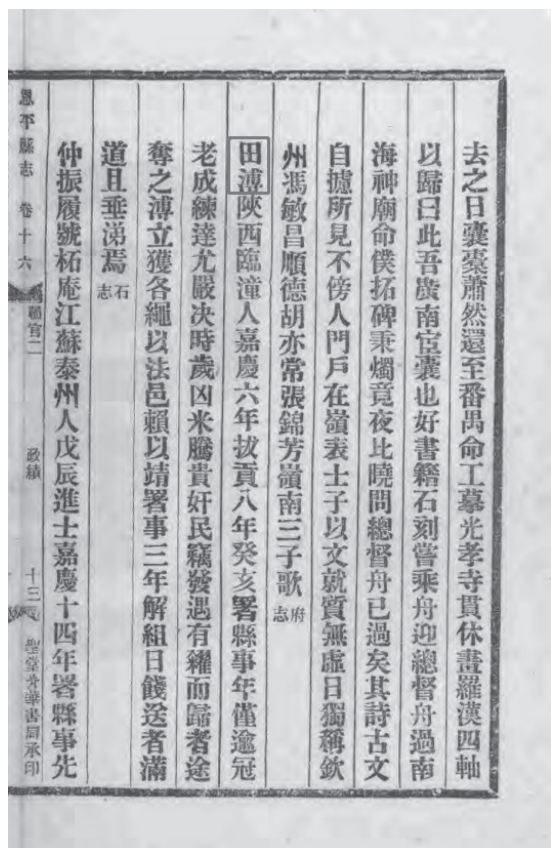 去之日囊橐蕭然還至番禺命工摹光孝寺貫休畫羅漢四軸
以歸曰此吾廣南宦囊也好書籍石刻嘗乘舟迎總督舟過南
海神廟命僕拓碑秉燭竟夜比曉問總督舟已過矣其詩古文
自攄所見不傍人門戶在嶺表士子以文就質無虛日獨稱欽
州馮敏昌順德胡亦常張錦芳嶺南三子歌府志
田溥陝西臨潼人嘉慶六年拔貢八年癸亥署縣事年僅逾冠
老成練達尤嚴决時歲凶米騰貴奸民竊發遇有糴而歸者途
奪之溥立獲各繩以法邑賴以靖署事三年解組日餞送者滿
道且垂涕焉石志
仲振履號柘庵江蘇泰州人戊辰進士嘉慶十四年署縣事先
恩平縣志 卷十六 職官二 政績 十三 聖堂光華書局承印